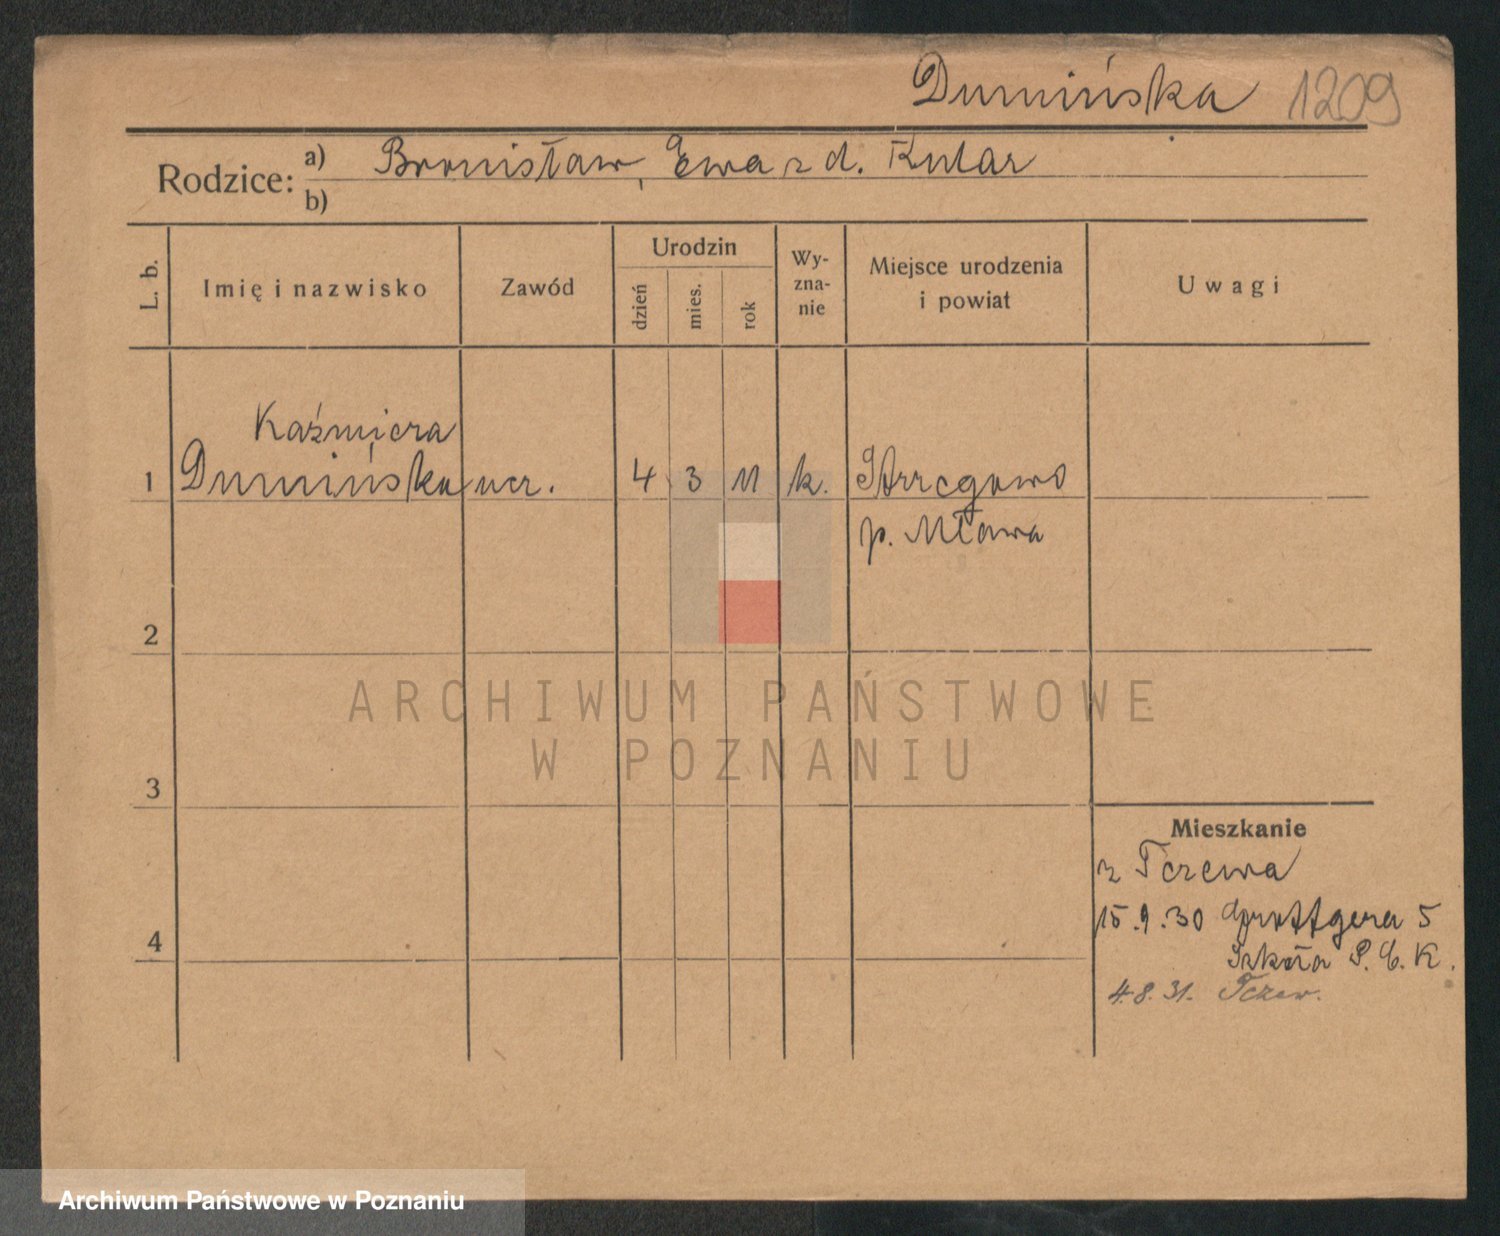 Dumińska 1209
Rodzice: a) Bronisław, Ewa z d. Kular
b)
L. b.
Imię i nazwisko
Zawód
Urodzin
dzień
mies.
rok
Wy-
zna-
nie
Miejsce urodzenia
i powiat
Uwagi
Kaźmiera
1 Dumińska ucz. 4 3 11 k. Strzegowo
p. Mława
2
3
4
Mieszkanie
z Tczewa
15.9.30 Grottgera 5
Szkoła P. C. K.
4.8.31. Tczew.
ARCHIWUM PAŃSTWOWE
W POZNANIU
Archiwum Państwowe w Poznaniu